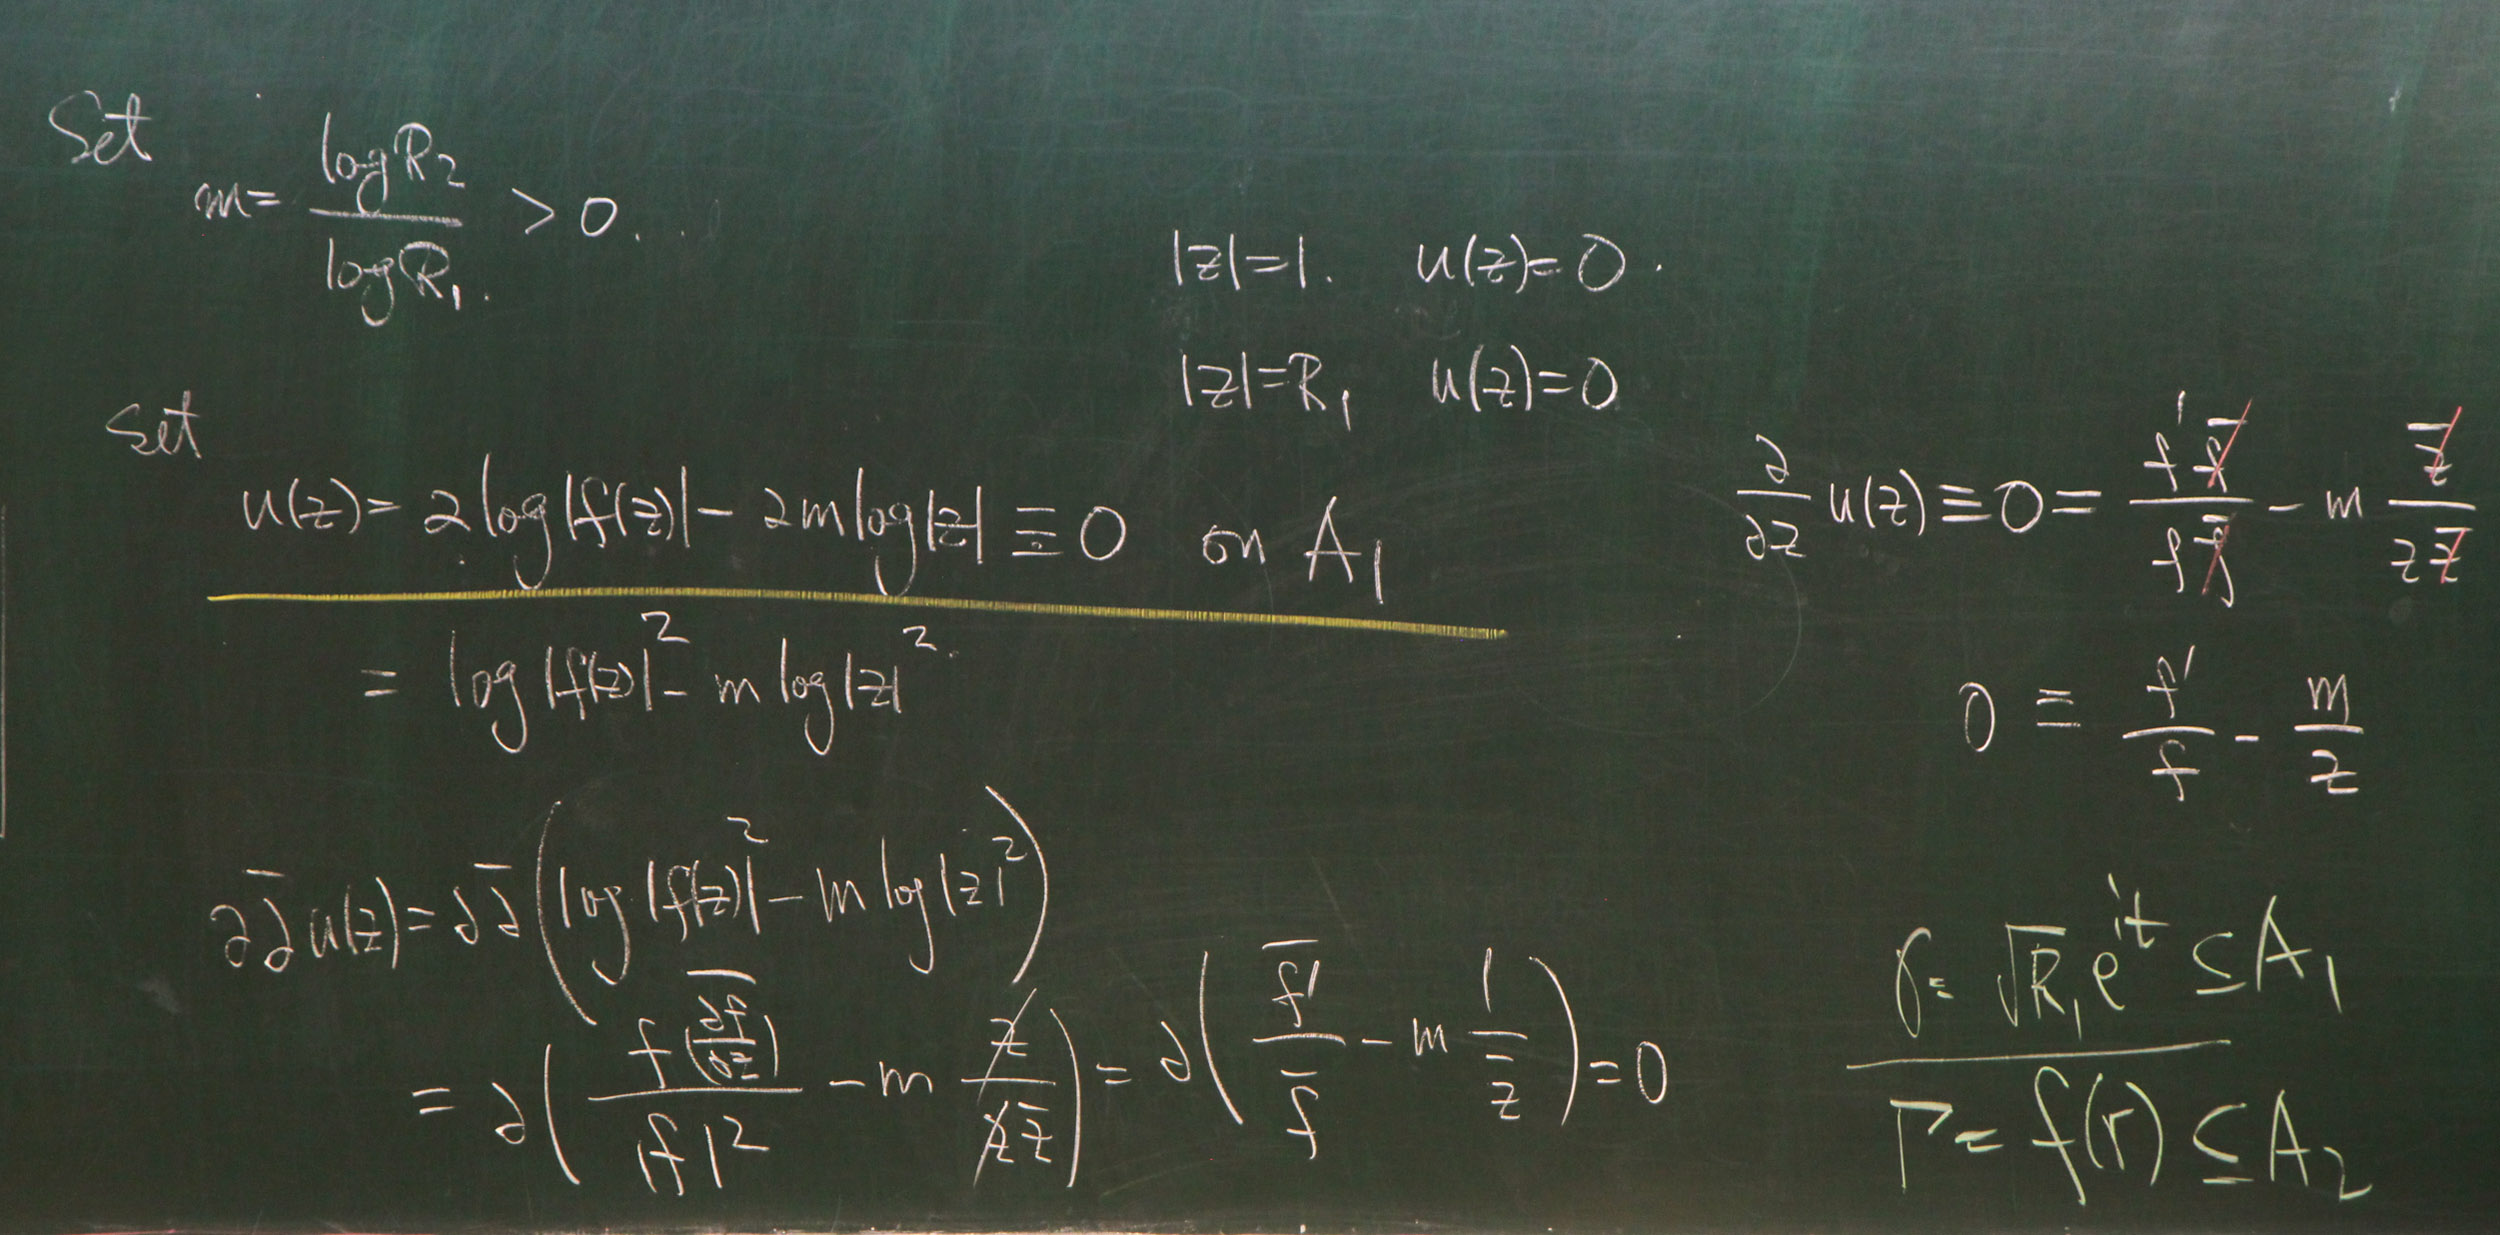 Set
m = \frac{log R_2}{log R_1} > 0.
|z|=1. u(z)=0.
|z|=R_1 u(z)=0
Set
u(z) = 2 log|f(z)| - 2m log|z| ≡ 0 on A_1
= log|f(z)|^2 - m log|z|^2.
∂\bar{∂} u(z) = ∂\bar{∂} ( log|f(z)|^2 - m log|z|^2 )
= ∂ ( \frac{f \overline{(\frac{∂f}{∂z})}}{|f|^2} - m \frac{z}{z\bar{z}} ) = ∂ ( \frac{\overline{f'}}{\bar{f}} - m \frac{1}{\bar{z}} ) = 0
\frac{∂}{∂z} u(z) ≡ 0 = \frac{f' \bar{f}}{f \bar{f}} - m \frac{\bar{z}}{z\bar{z}}
0 ≡ \frac{f'}{f} - \frac{m}{z}
r = \sqrt{R_1} e^{it} ⊆ A_1
Γ = f(r) ⊆ A_2